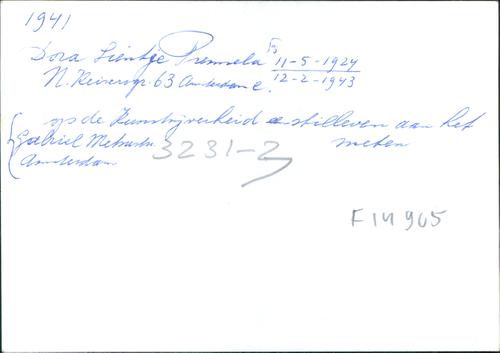 1941
Dora Sientje Premsela 11-5-1924
N. Keizersgr. 63 Amsterdam C. 12-2-1943
op de Kunstnijverheid stilleven aan het
Gabriel Metsustr. meten
Amsterdam
3231-2
F 14905